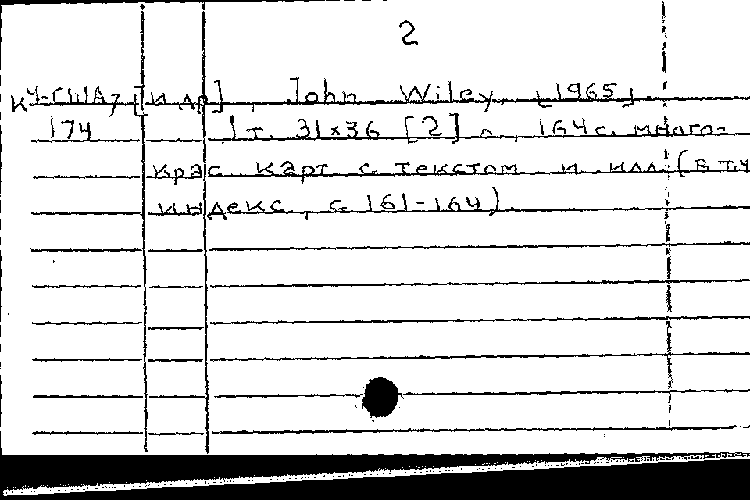 2
К4-США7 [и др], John Wiley, [1965]
174 1 т. 31×36 [2] л, 164с. много-
крас карт с текстом и илл. (в т.ч
индекс, с 161-164).